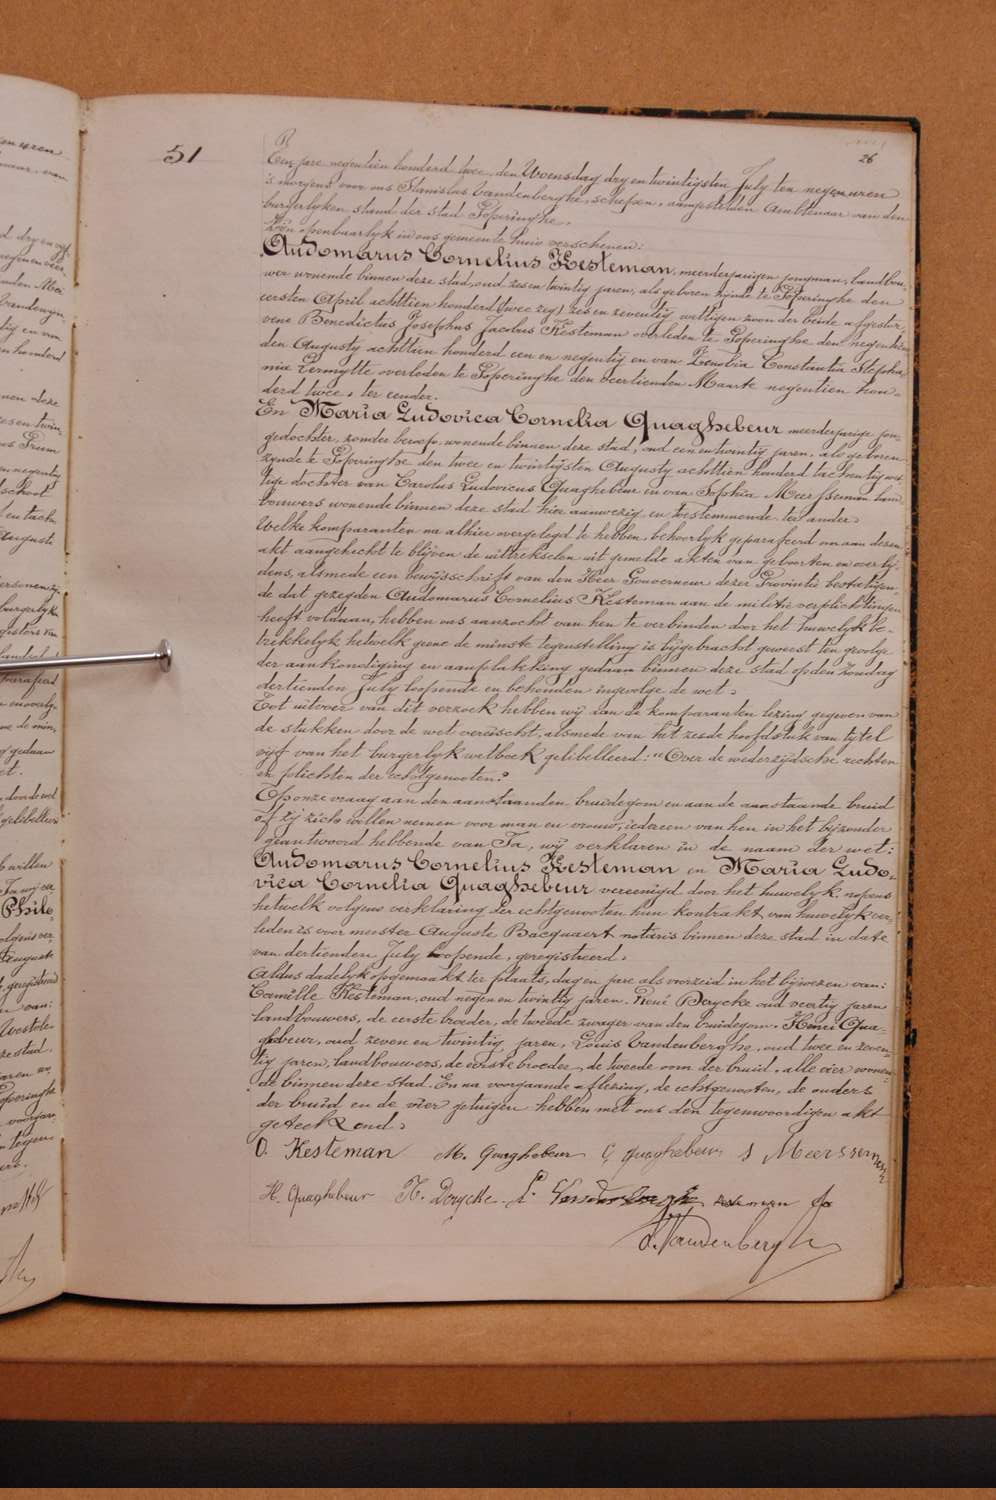 51
26
Een jare negentien honderd twee, den Woensdag dry en twintigsten July ten negen uren
's morgens voor ons Stanislas Vandenberghe, schepen, aangestelden Ambtenaar van den
burgerlyken stand der stad Poperinghe.
Zyn openbaarlyk in ons gemeente huis verschenen:
Audomarus Cornelius Kesteman, meerderjarigen jongman, landbou-
wer wonende binnen deze stad, oud zes en twintig jaren, als geboren zynde te Poperinghe den
eersten April achttien honderd (twee zeg) zes en zeventig wettigen zoon der beide afgestor-
vene Benedictus Josephus Jacobus Kesteman overleden te Poperinghe den negentien
den Augusty achttien honderd een en negentig en van Zenobia Constantia Stepha-
nia Lermytte overleden te Poperinghe den veertienden Maarte negentien hon-
derd twee, ter eender.
En Maria Ludovica Cornelia Quaghebeur meerderjarige jon-
gedochter, zonder beroep, wonende binnen deze stad, oud een en twintig jaren, als geboren
zynde te Poperinghe den twee en twintigsten Augusty achttien honderd tachentig wet-
tige dochter van Carolus Ludovicus Quaghebeur en van Sophia Meersseman land-
bouwers wonende binnen deze stad hier aanwezig en toestemmende ter ander.
Welke komparanten na alhier overgelegd te hebben, behoorlyk geparafeerd om aan dezen
akt aangehecht te blijven de uittrekselen uit gemelde akten van geboorten en overly-
dens, alsmede een bewijsschrift van den Heer Gouverneur dezer Provintie bestatigen-
de dat gezegden Audomarus Cornelius Kesteman aan de militie verplichtingen
heeft voldaan, hebben ons aanzocht van hen te verbinden door het huwelyk be-
trekkelyk hetwelk geene de minste tegenstelling is bijgebracht geweest ten gevolge
der aankondiging en aanplakking gedaan binnen deze stad op den zondag
dertienden July loopende en behouden ingevolge de wet.
Tot uitvoer van dit verzoek hebben wij aan de komparanten lezing gegeven van
de stukken door de wet vereischt, alsmede van het zesde hoofdstuk van tytel
vijf van het burgerlyk wetboek gelibelleerd: "Over de wederzijdsche rechten
en plichten der echtgenooten."
Op onze vraag aan den aanstaanden bruidegom en aan de aanstaande bruid
of zij zich willen nemen voor man en vrouw, iedereen van hen in het bijzonder
geantwoord hebbende van Ja, wij verklaren in de naam der wet:
Audomarus Cornelius Kesteman en Maria Ludo-
vica Cornelia Quaghebeur vereenigd door het huwelyk nopens
hetwelk volgens verklaring der echtgenooten hun kontrakt van huwelyk ver-
leden is voor meester Auguste Bacquaert notaris binnen deze stad in date
van dertienden July loopende, geregistreerd.
Aldus dadelyk opgemaakt ter plaats, dag en jare als voorzeid in het bijwezen van:
Camille Kesteman, oud negen en twintig jaren, René Dorycke oud veertig jaren
landbouwers, de eerste broeder, de tweede zwager van den bruidegom, Henri Qua-
ghebeur, oud zeven en twintig jaren, Louis Vandenberghe, oud twee en zeven-
tig jaren, landbouwers, de eerste broeder, de tweede oom der bruid, alle vier wonen-
de binnen deze stad. En na voorgaande aflezing, de echtgenooten, de ouders
der bruid en de vier getuigen hebben met ons den tegenwoordigen akt
geteekend.
O. Kesteman M. Quaghebeur C quaghebeur S Meersseman
H. Quaghebeur R. Dorycke L. Vandenberghe
S. Vandenberghe